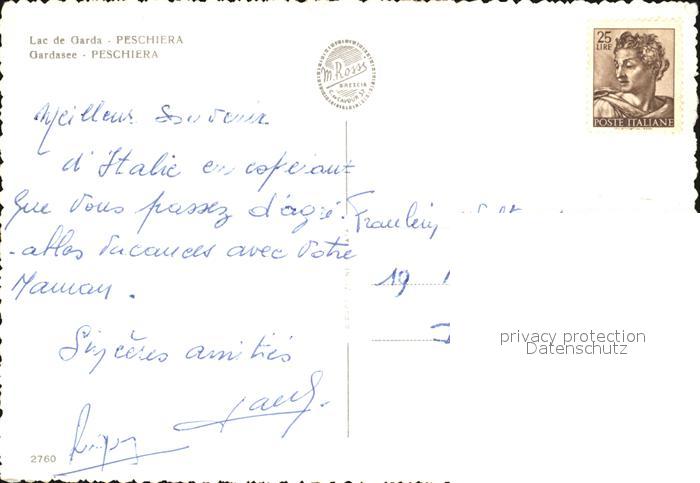 Lac de Garda - PESCHIERA
Gardasee - PESCHIERA
M. Rossi
BRESCIA
C. CAVOUR
25
LIRE
POSTE ITALIANE
Meilleur Souvenir
d'Italie en espérant
que vous passez d'agré-
-ables vacances avec votre
Maman.
Sincères amitiés
19
privacy protection
Datenschutz
2760